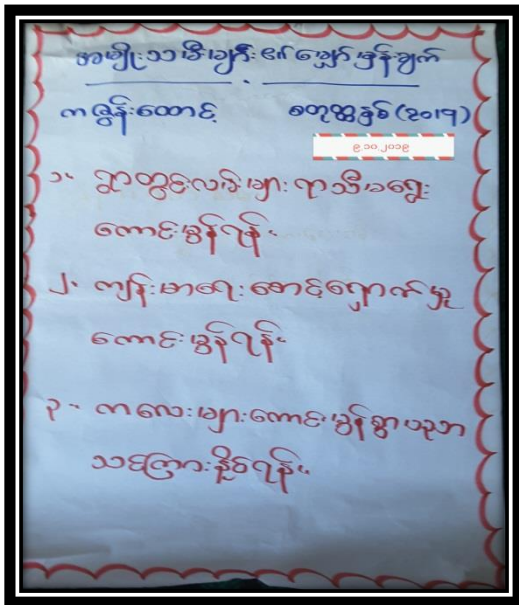 အမျိုးသမီးများ၏ မျှော်မှန်းချက်
ကဇွန်းထောင့် စတုတ္ထနှစ် (၂၀၁၅)
၉.၁၀.၂၀၁၉
၁။ ရွာတွင်းလမ်းများ ရာသီမရွေး
ကောင်းမွန်ရန်။
၂. ကျန်းမာရေးစောင့်ရှောက်မှု
ကောင်းမွန်ရန်။
၃။ ကလေးများကောင်းမွန်စွာပညာ
သင်ကြားနိုင်ရန်။